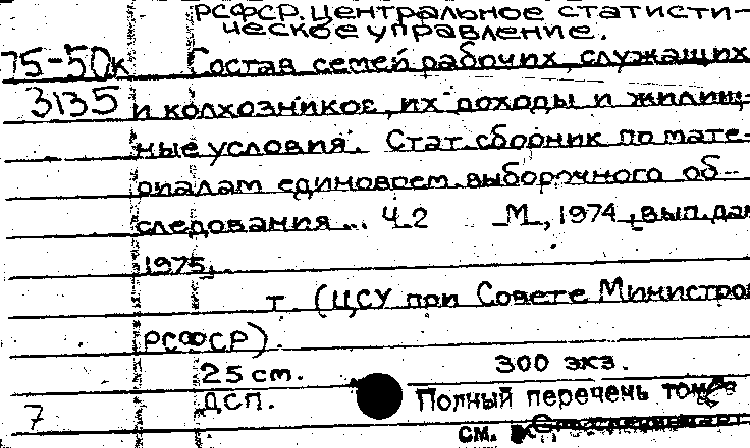 РСФСР. Центральное статисти-
ческое управление.
75-50к Состав семей рабочих, служащих
3135 и колхозников, их доходы и жилищ-
ные условия. Стат. сборник по мате-
риалам единоврем. выборочного об-
следования... Ч. 2 М., 1974, вып. дан
1975.
т. (ЦСУ при Совете Министров
РСФСР).
25 см. 300 экз.
ДСП. Полный перечень томов
7 см.